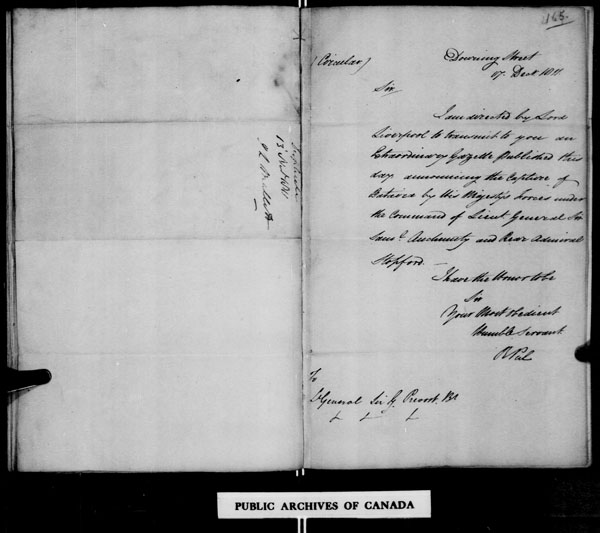 165.
(Circular)
Downing Street
17 Decr 1811
Sir
I am directed by Lord
Liverpool to transmit to you an
Extraordinary Gazette Published this
day announcing the Capture of
Batavia by His Majesty's Forces under
the Command of Lieut General Sir
Saml. Auchmuty and Rear Admiral
Stopford.
I have the Honor to be
Sir
Your Most obedient
Humble Servant
R Peel
To
Lt General Sir G. Prevost Bt
Duplicate
PUBLIC ARCHIVES OF CANADA